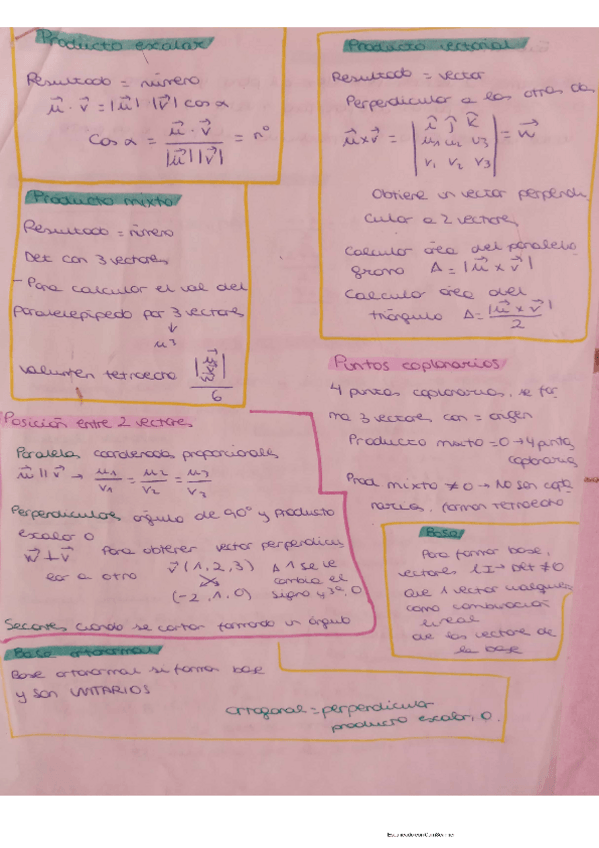 Producto escalar
Resultado = número
u⃗ · v⃗ = |u⃗| |v⃗| cos α
Cos α = u⃗ · v⃗ / |u⃗| |v⃗| = nº
Producto vectorial
Resultado = vector
Perpendicular a los otros dos
u⃗ x v⃗ = | i⃗ j⃗ k⃗ | = w⃗
u1 u2 v3
v1 v2 v3
Obtiene un vector perpendi
cular a 2 vectores
Calcular área del paralelo
gramo A = |u⃗ x v⃗|
Calcular área del
triángulo A = |u⃗ x v⃗| / 2
Producto mixto
Resultado = número
Det con 3 vectores
- Para calcular el val del
paralelepípedo por 3 vectores
↓
u3
volumen tetraedro
6
Puntos coplanarios
4 puntos coplanarios, se for
ma 3 vectores con = origen
Producto mixto = 0 → 4 puntos
coplanarios
Prod mixto ≠ 0 → No son copla
narios, forman tetraedro
Posición entre 2 vectores
Paralelos coordenadas proporcionales
u⃗ || v⃗ → u1/v1 = u2/v2 = u3/v3
Perpendiculares ángulo de 90º y producto
escalar 0
w⃗ ⊥ v⃗ Para obtener vector perpendicul
ar a otro v⃗ (1, 2, 3) A 1 se le
cambia el
(-2, 1, 0) signo y 3º, 0
Secantes cuando se cortan formando un ángulo
Base
Para formar base,
vectores LI → Det ≠ 0
Que 1 vector cualquiera
como combinación
lineal
de los vectores de
la base
Base ortonormal
Base ortonormal si forman base
y son UNITARIOS
ortogonal = perpendicular
producto escalar, 0.
Escaneado con CamScanner